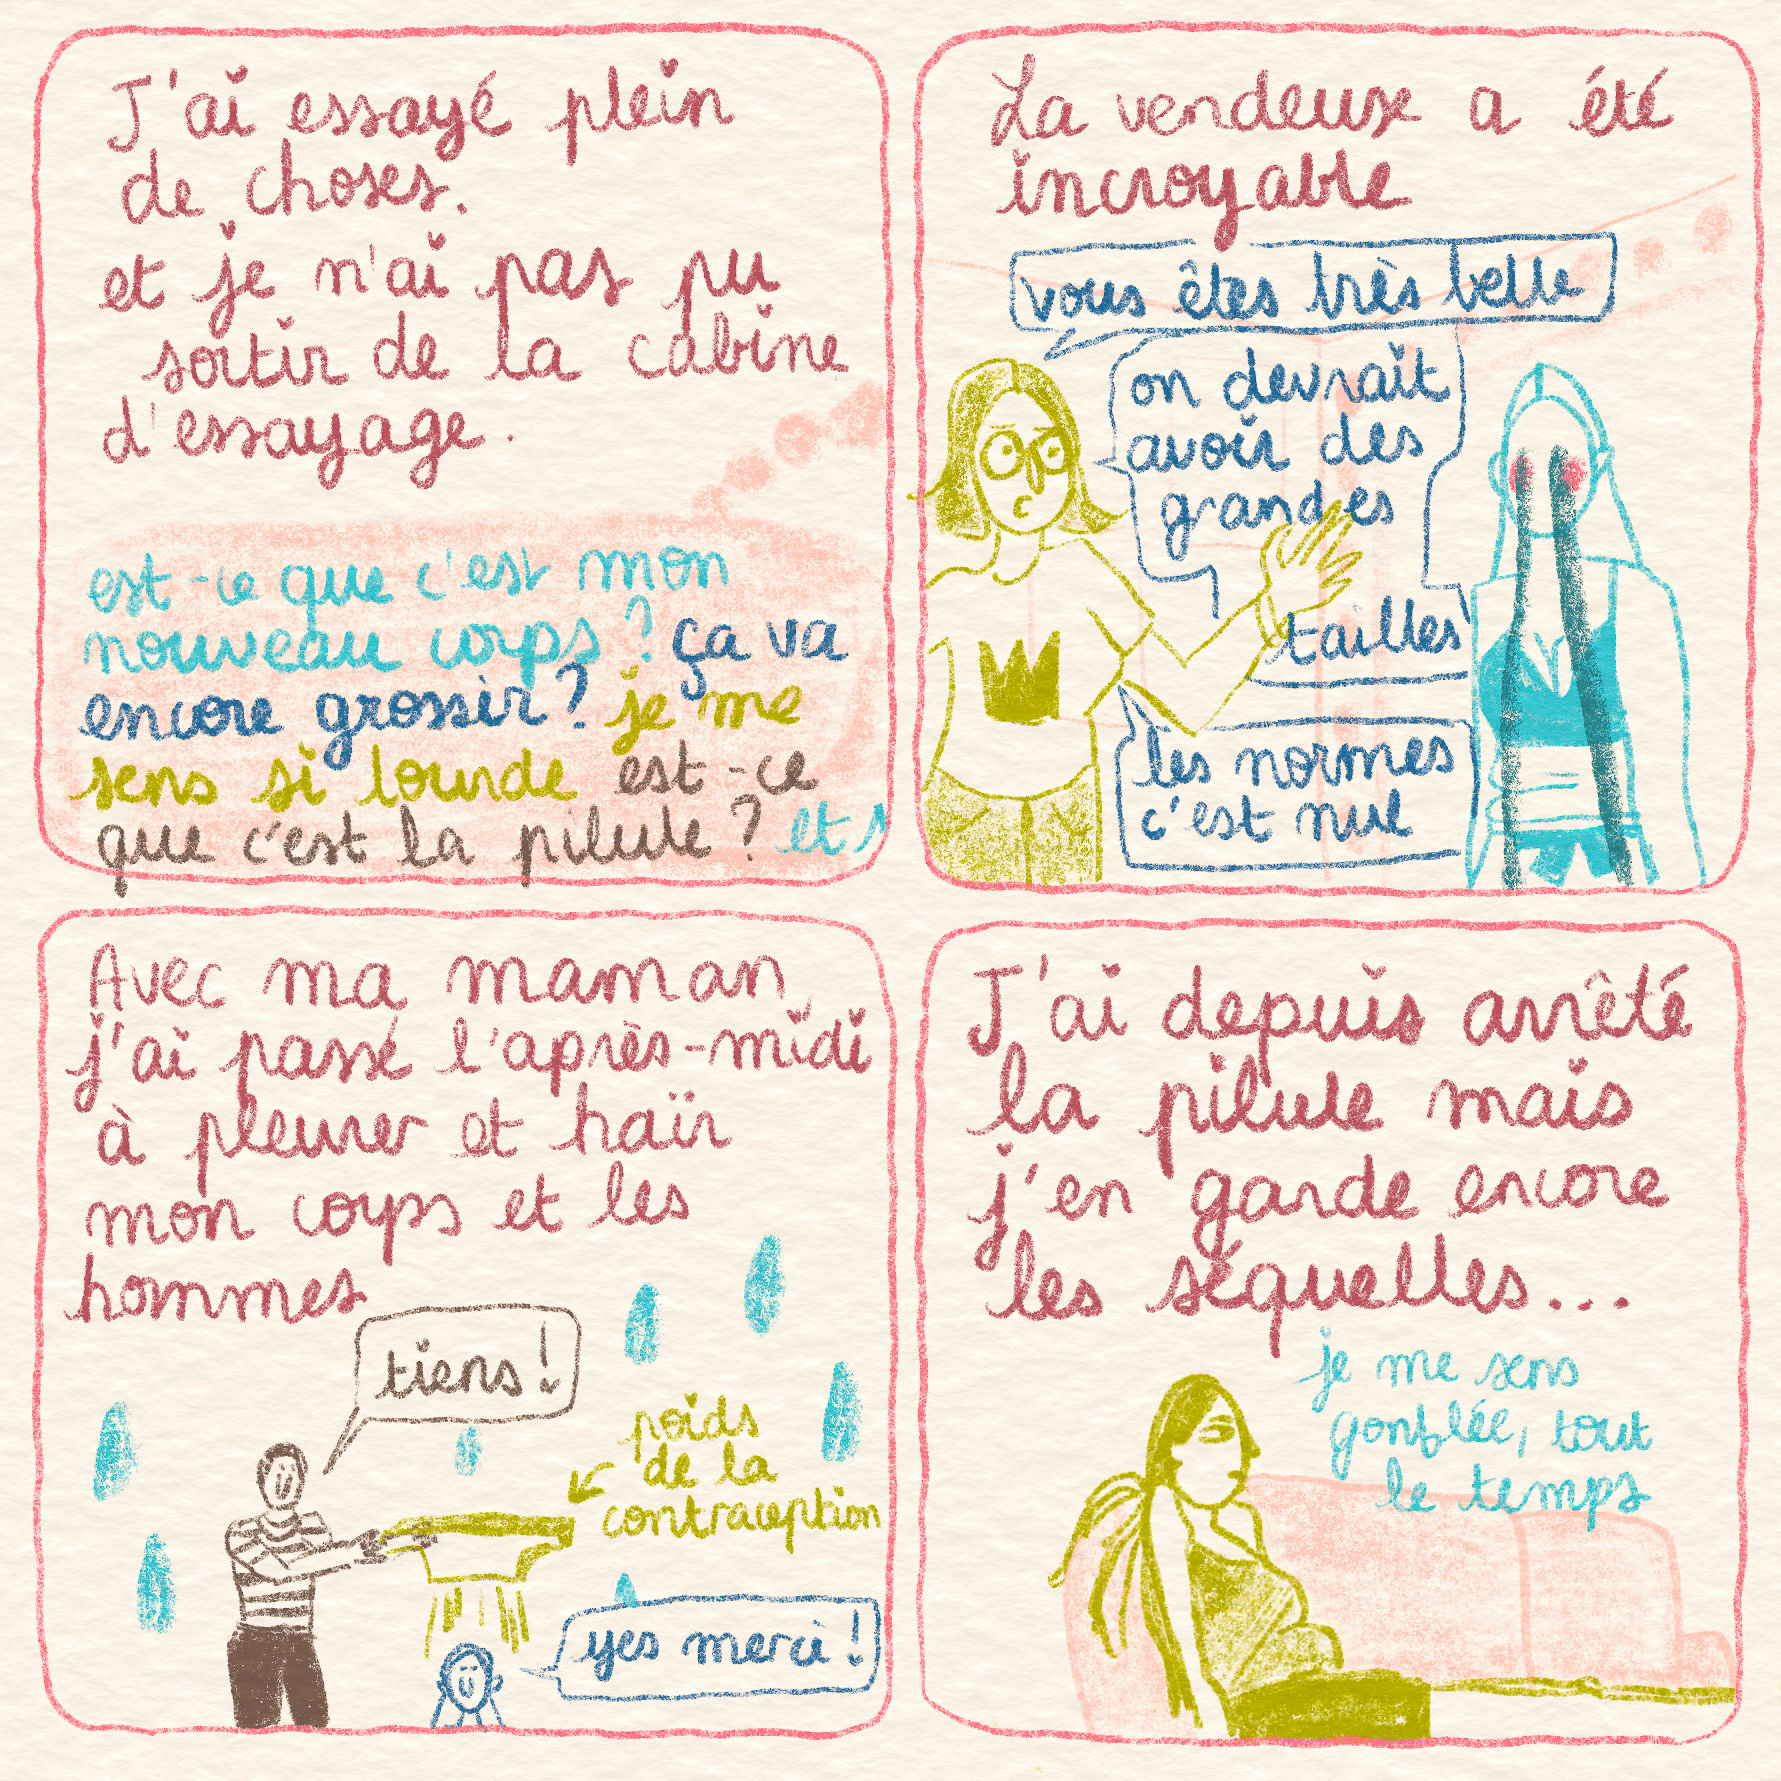 J'ai essayé plein
de choses.
et je n'ai pas pu
sortir de la cabine
d'essayage.
est-ce que c'est mon
nouveau corps ? ça va
encore grossir ? je me
sens si lourde est-ce
que c'est la pilule ? et s
La vendeuse a été
incroyable
vous êtes très belle
on devrait
avoir des
grandes
tailles
les normes
c'est nul
Avec ma maman,
j'ai passé l'après-midi
à pleurer et haïr
mon corps et les
hommes
tiens !
poids
de la
contraception
yes merci !
J'ai depuis arrêté
la pilule mais
j'en garde encore
les séquelles...
je me sens
gonflée, tout
le temps